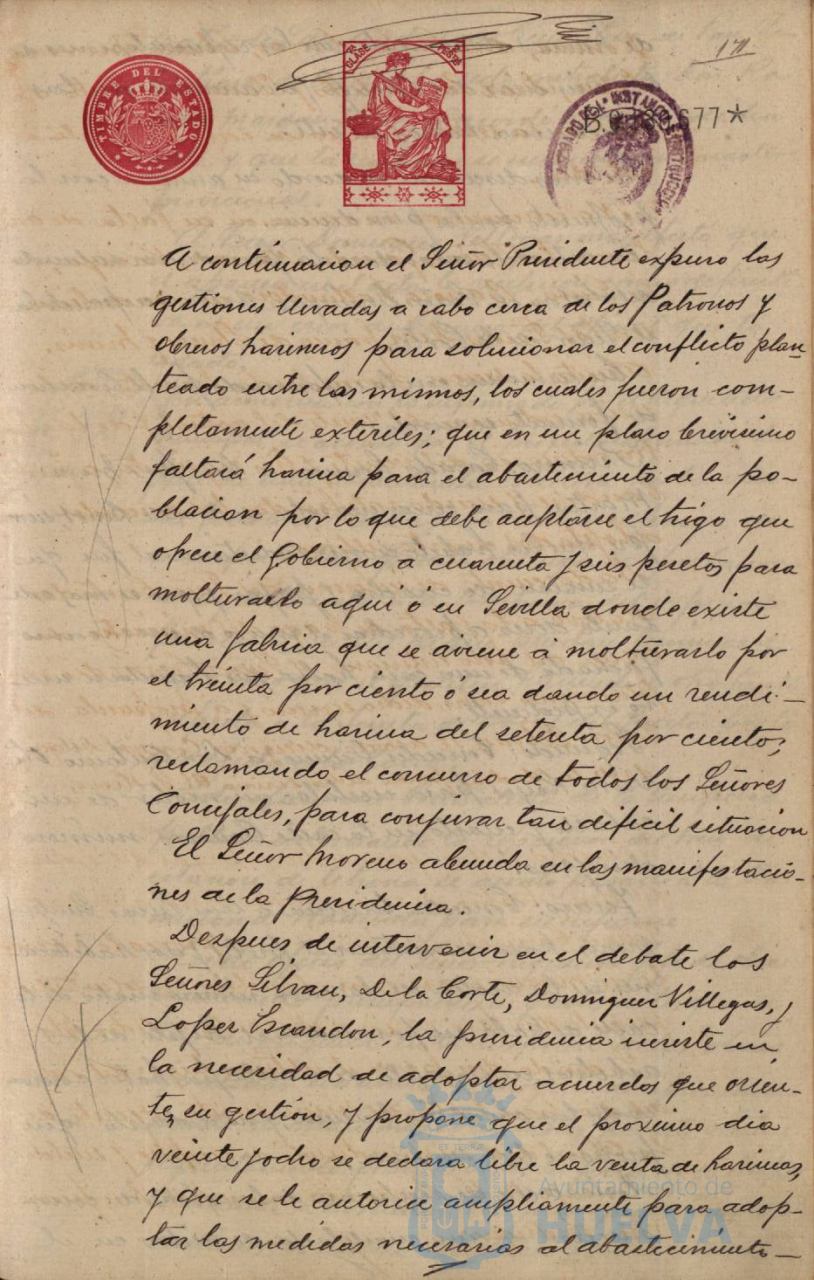 171
TIMBRE DEL ESTADO
CLASE
677*
A continuacion el Señor Presidente expuso las
gestiones llevadas a cabo cerca de los Patronos y
obreros harineros para solucionar el conflicto plan
teado entre las mismos, los cuales fueron com-
pletamente exteriles; que en un plazo brevisimo
faltará harina para el abastenimto de la po-
blacion por lo que debe aceptarse el trigo que
ofrece el Gobierno a cuarenta y seis pesetas para
molturarlo aqui ó en Sevilla donde existe
una fabrica que se aviene á molturarlo por
el treinta por ciento ó sea dando un rendi-
miento de harina del setenta por ciento;
reclamando el concurso de todos los Señores
Concejales, para conjurar tan dificil situacion
El Señor Moreno abunda en las manifestacio-
nes de la Presidencia.
Despues de intervenir en el debate los
Señores Silvan, De la Corte, Dominguez Villegas, y
Lopez Escandon, la presidencia insiste en
la necesidad de adoptar acuerdos que orien-
ten su gestión, y propone que el proximo dia
veinte y ocho se declara libre la venta de harinas,
y que se le autorice ampliamente para adop-
tar las medidas necesarias al abastecimiento-
Ayuntamiento de
HUELVA